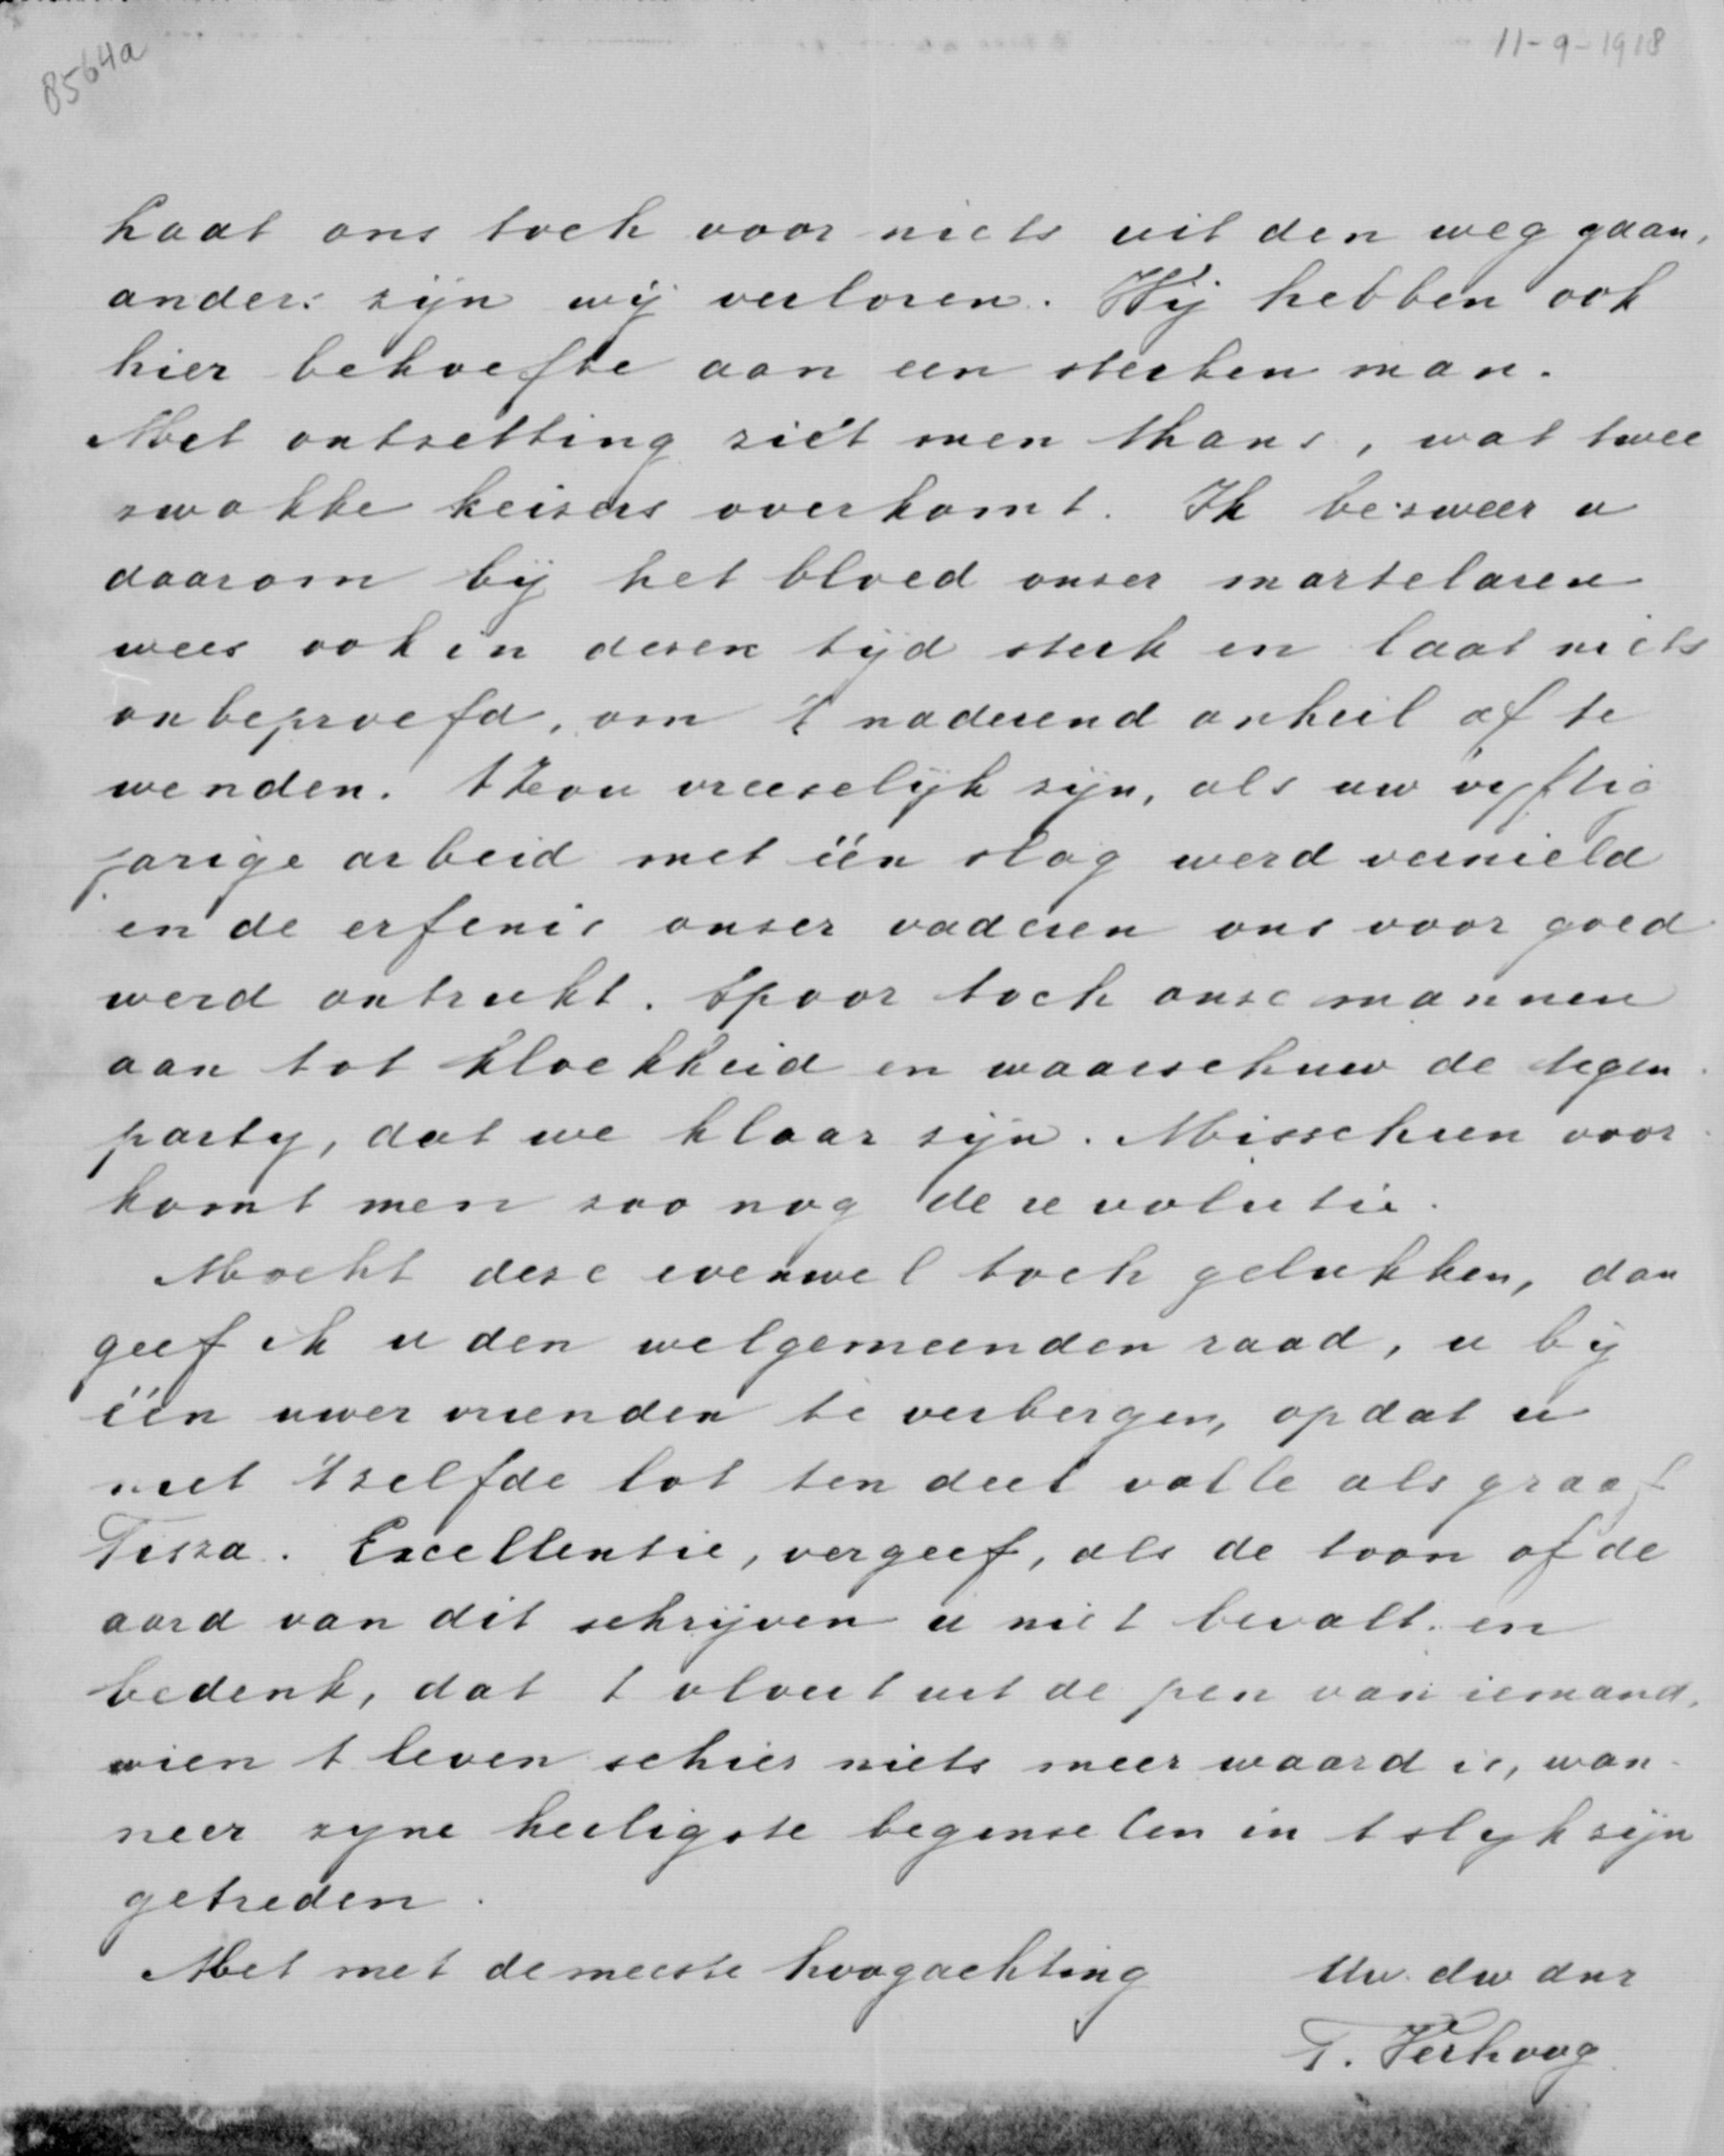 8564a
11-9-1918
Laat ons toch voor niets uit den weg gaan,
anders zijn wij verloren. Wij hebben ook
hier behoefte aan een sterken man.
Met ontzetting ziet men thans, wat twee
zwakke keizers overkomt. Ik bezweer u
daarom bij het bloed onzer martelaren
wees ook in dezen tijd sterk en laat niets
onbeproefd, om 't naderend onheil af te
wenden. 't Zou vreeselijk zijn, als uw vijftig
jarige arbeid met één slag werd vernield
en de erfenis onzer vaderen ons voor goed
werd ontrukt. Spoor toch onze mannen
aan tot kloekheid en waarschuw de tegen
party, dat we klaar zijn. Misschien voor
komt men zoo nog de revolutie.
Mocht deze evenwel toch gelukken, dan
geef ik u den welgemeenden raad, u bij
één uwer vrienden te verbergen, opdat u
niet 't zelfde lot ten deel valle als graaf
Tisza. Excellentie, vergeef, als de toon of de
aard van dit schrijven u niet bevalt en
bedenk, dat t vloeit uit de pen van iemand,
wien t leven schier niets meer waard is, wan
neer zyne heiligste beginselen in t slyk zijn
getreden.
Met met de meeste hoogachting
Uw dw dnr
T. Verhoog